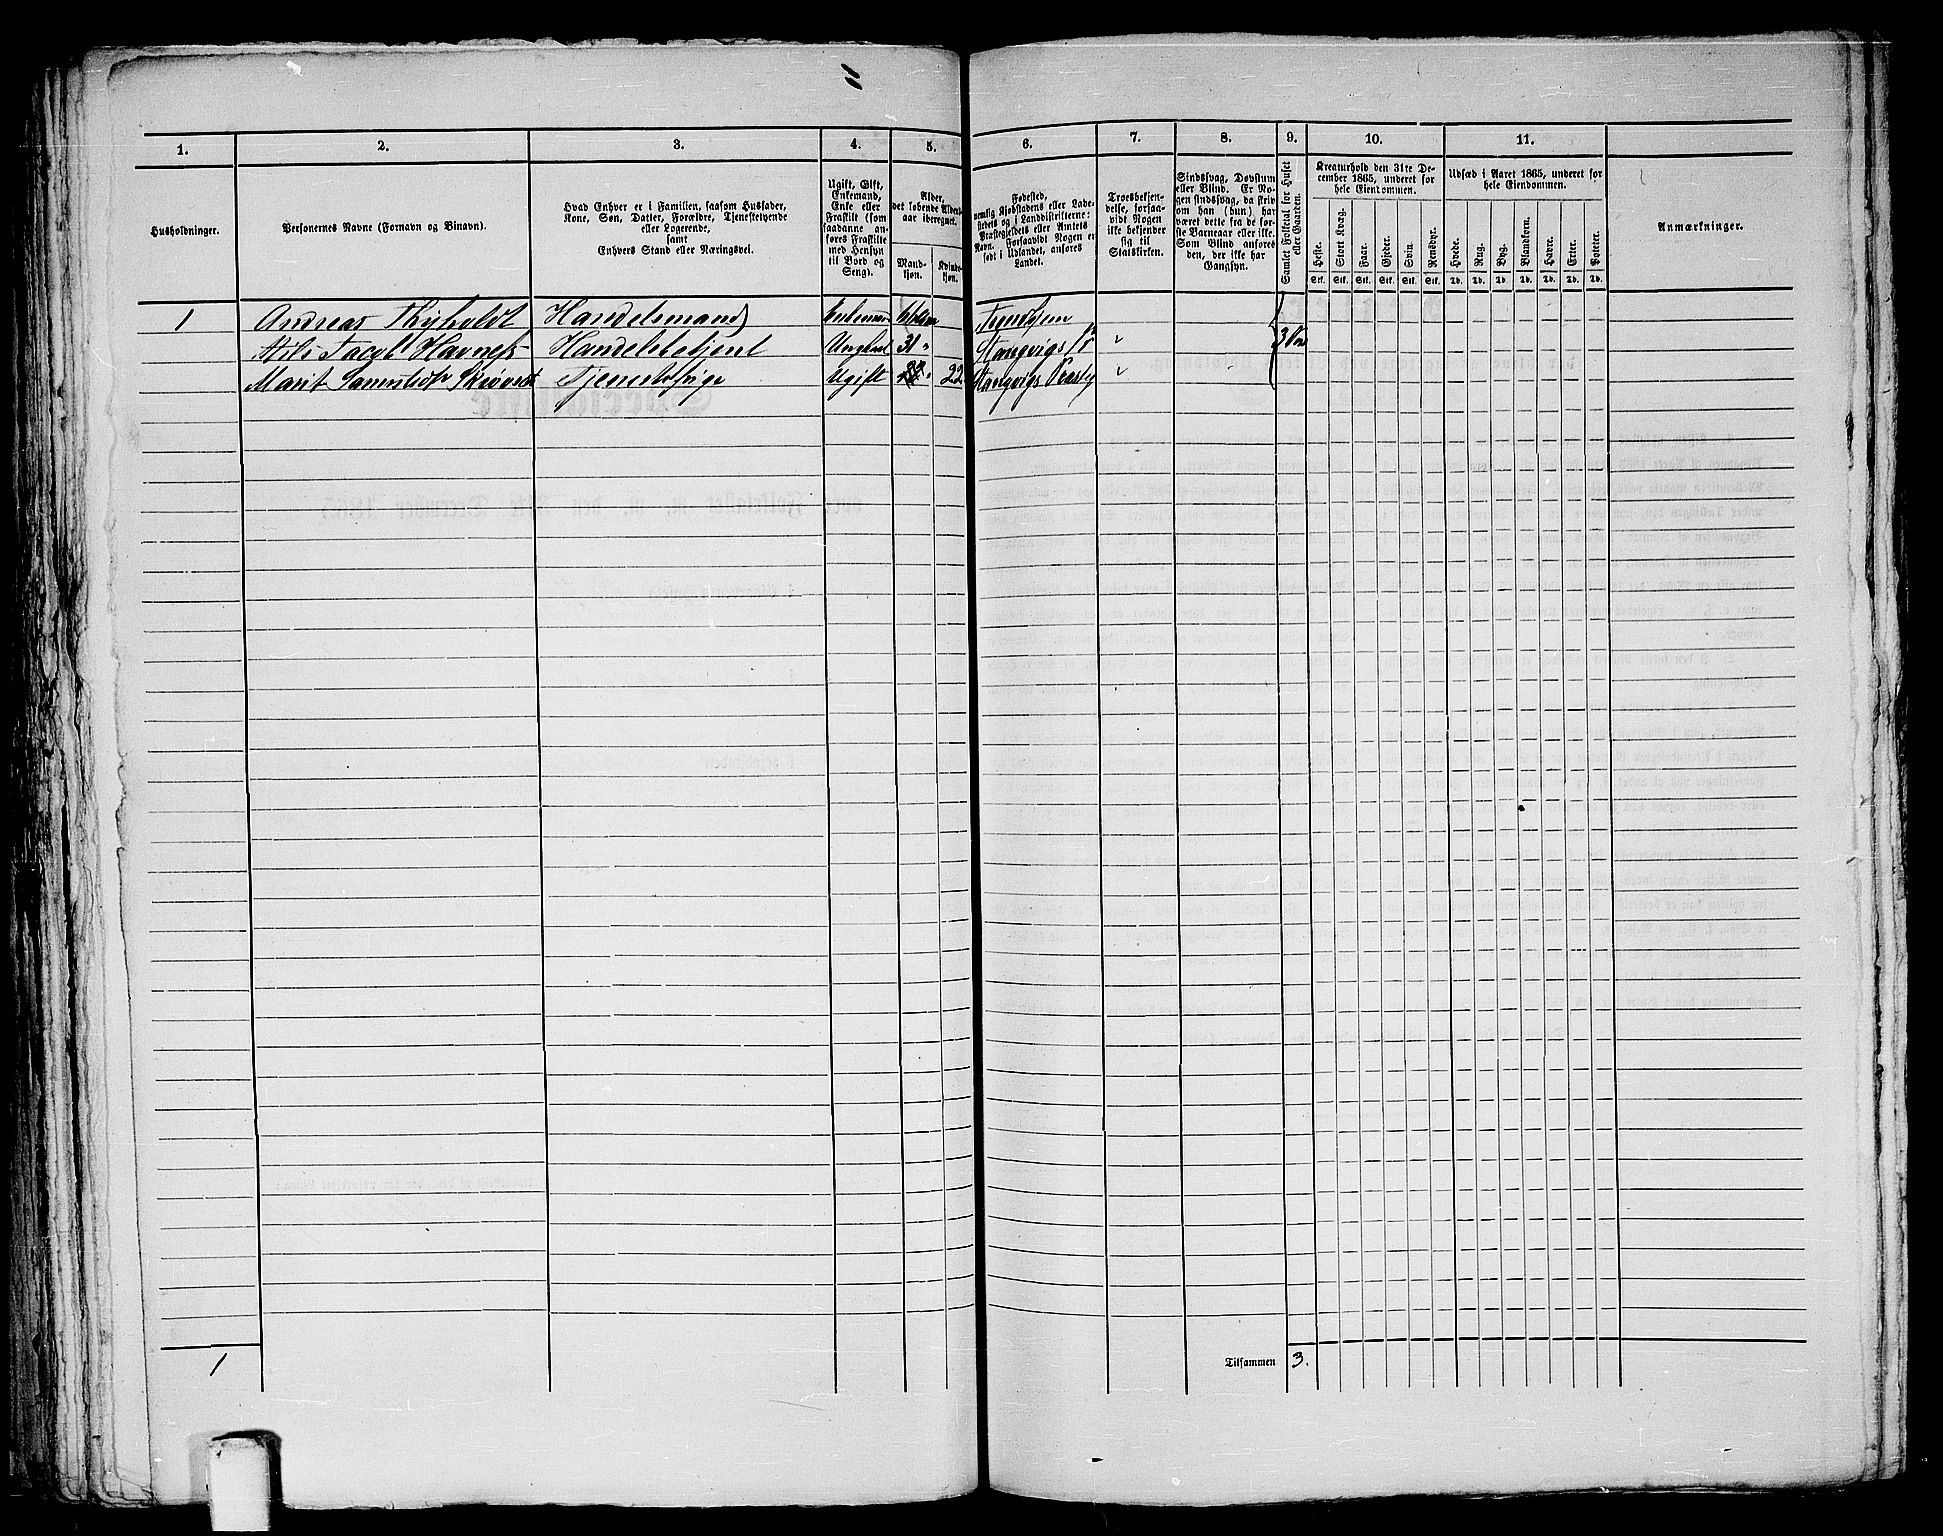 1. 2. 3. 4. 5. 6. 7. 8. 9. 10. 11.
Husholdninger.
Personernes Navne (Fornavn og Binavn).
Hvad Enhver er i Familien, saasom Husfader,
Kone, Søn, Datter, Forældre, Tjenestetyende
eller Logerende,
samt
Enhvers Stand eller Næringsvei.
Ugift, Gift,
Enkemand,
Enke eller
Fraskilt (som
saadanne an-
føres Fraskilte
med Hensyn
til Bord og
Seng).
Alder,
det løbende Alders-
aar iberegnet.
Mand-
kjøn.
Kvinde-
kjøn.
Fødested,
nemlig Kjøbstadens eller Lade-
stedets og i Landdistrikterne:
Præstegjeldets eller Amtets
Navn. Forsaavidt Nogen er
født i Udlandet, anføres
Landet.
Troesbekjen-
delse, forsaa-
vidt Nogen
ikke bekjender
sig til
Statskirken.
Sindssvag, Døvstum
eller Blind. Er No-
gen sindssvag, da skriv
om han (hun) har
været dette fra de før-
ste Barneaar eller ikke.
Som Blind anføres
den, der ikke har
Gangsyn.
Samlet Folketal for Huset
eller Gaarden.
Kreaturhold den 31te De-
cember 1865, underet for
hele Eiendommen.
Heste. Stort Kvæg. Faar. Gjeder. Svin. Rensdyr.
Stk. Stk. Stk. Stk. Stk. Stk.
Udsæd i Aaret 1865, underet for
hele Eiendommen.
Hvede. Rug. Byg. Blandkorn. Havre. Erter. Poteter.
Td. Td. Td. Td. Td. Td. Td.
Anmærkninger.
1 Andreas Thyholdt Handelsmand
Jacob Havnes Handelsbetjent 31 " Stangvigs "
Marit Skrøvset Tjenestepige Ugift 22 Stangvigs "
1
Tilsammen 3.